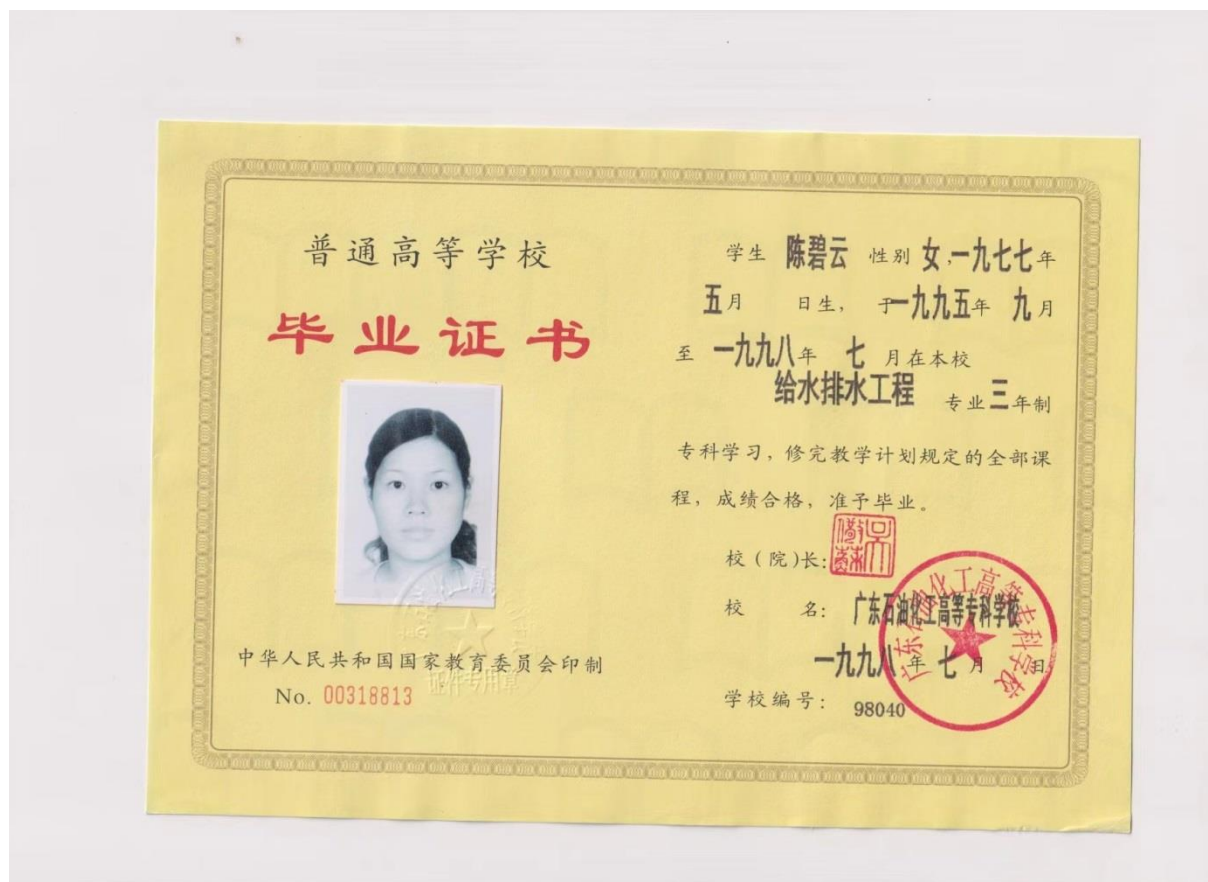 普通高等学校
毕业证书
中华人民共和国国家教育委员会印制
No. 00318813
学生 陈碧云 性别 女,一九七七年
五月 日生, 于一九九五年 九月
至 一九九八年 七 月在本校
给水排水工程 专业三年制
专科学习, 修完教学计划规定的全部课
程, 成绩合格, 准予毕业。
校(院)长:
校 名: 广东石油化工高等专科学校
一九九八年 七月 日
学校编号: 98040
广东石油化工高等专科学校
证件专用章